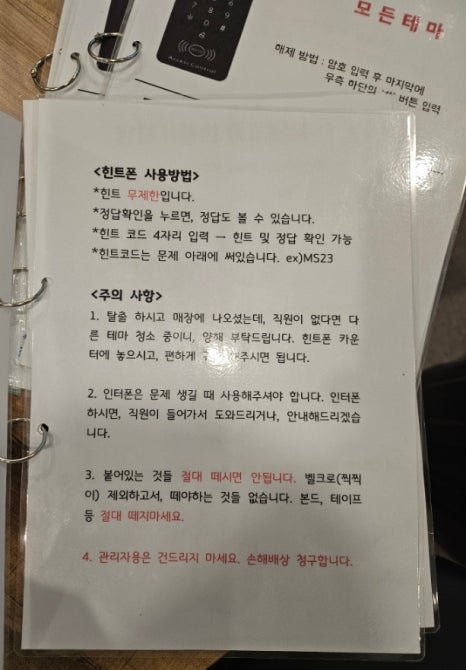 모든테마
해제 방법 : 암호 입력 후 마지막에
우측 하단의 버튼 입력
Access Control
<힌트폰 사용방법>
*힌트 무제한입니다.
*정답확인을 누르면, 정답도 볼 수 있습니다.
*힌트 코드 4자리 입력 → 힌트 및 정답 확인 가능
*힌트코드는 문제 아래에 써있습니다. ex)MS23
<주의 사항>
1. 탈출 하시고 매장에 나오셨는데, 직원이 없다면 다
른 테마 청소 중이니, 양해 부탁드립니다. 힌트폰 카운
터에 놓으시고, 편하게 주시면 됩니다.
2. 인터폰은 문제 생길 때 사용해주셔야 합니다. 인터폰
하시면, 직원이 들어가서 도와드리거나, 안내해드리겠습
니다.
3. 붙어있는 것들 절대 떼시면 안됩니다. 벨크로(찍찍
이) 제외하고서, 떼야하는 것들 없습니다. 본드, 테이프
등 절대 떼지마세요.
4. 관리자용은 건드리지 마세요. 손해배상 청구합니다.